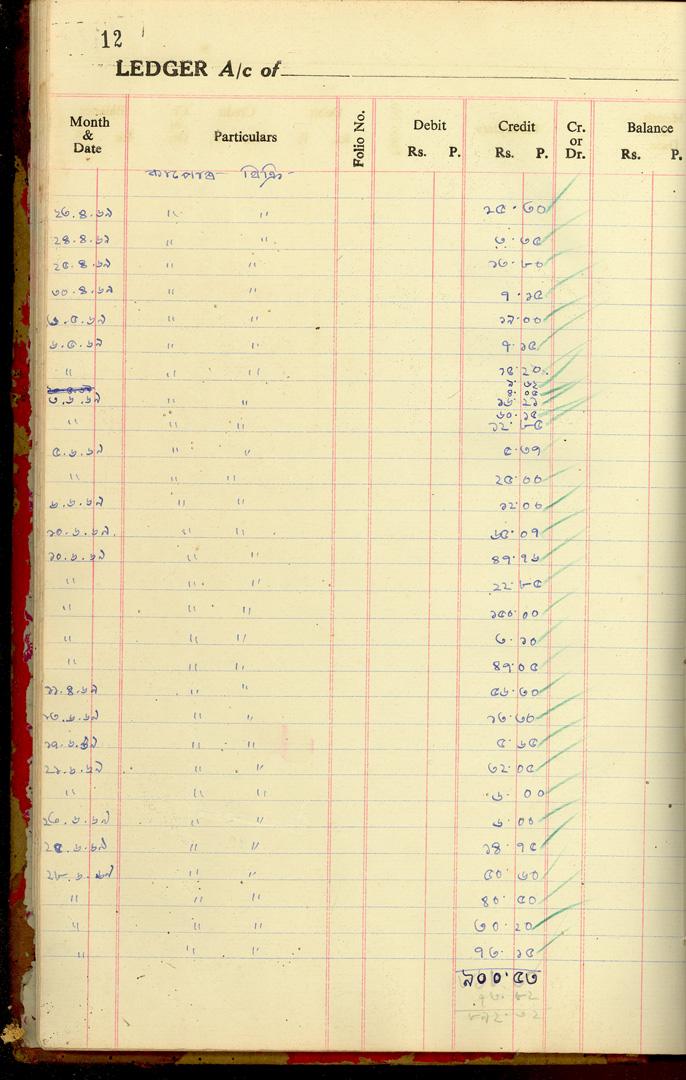 12
LEDGER A/c of
Month & Date Particulars Folio No. Debit Rs. P. Credit Rs. P. Cr. or Dr. Balance Rs. P.
কাপড় বিক্রি
২৩.৪.৬৯ " " ২৫.৩০
২৪.৪.৬৯ " " ৩.৩৫
২৫.৪.৬৯ " " ১৩.৮০
৩০.৪.৬৯ " " ৭.১৫
৩.৫.৬৯ " " ১৯.০০
৬.৫.৬৯ " " ৭.১৫
" " " ১৫.২০
৩.৬.৬৯ " " ১৬.২২
" " " ১২.৮৫
৫.৬.৬৯ " " ৫.৩৭
" " " ২৫.৩০
৬.৬.৬৯ " "
১০.৬.৬৯ " "
১০.৬.৬৯ " " ৪৭.৭৬
" " " ২২.৮৫
" " " ১৫০.০০
" " " ৩.১০
" " " ৪৭.০৫
১১.৪.৬৯ " " ৫৬.৩০
১৩.৬.৬৯ " " ১৩.৩০
১৭.৬.৬৯ " " ৫.৬৫
২১.৬.৬৯ " " ৩২.০৫
" " " ৬.০০
২৩.৬.৬৯ " " ৬.০০
২৫.৬.৬৯ " " ১৪.৭৫
২৮.৬.৬৯ " " ৫০.৬০
" " " ৪০.৫০
" " " ৩০.২০
" " " ৭৩.১৫
৯০০.৫৩
৭৩.৮২